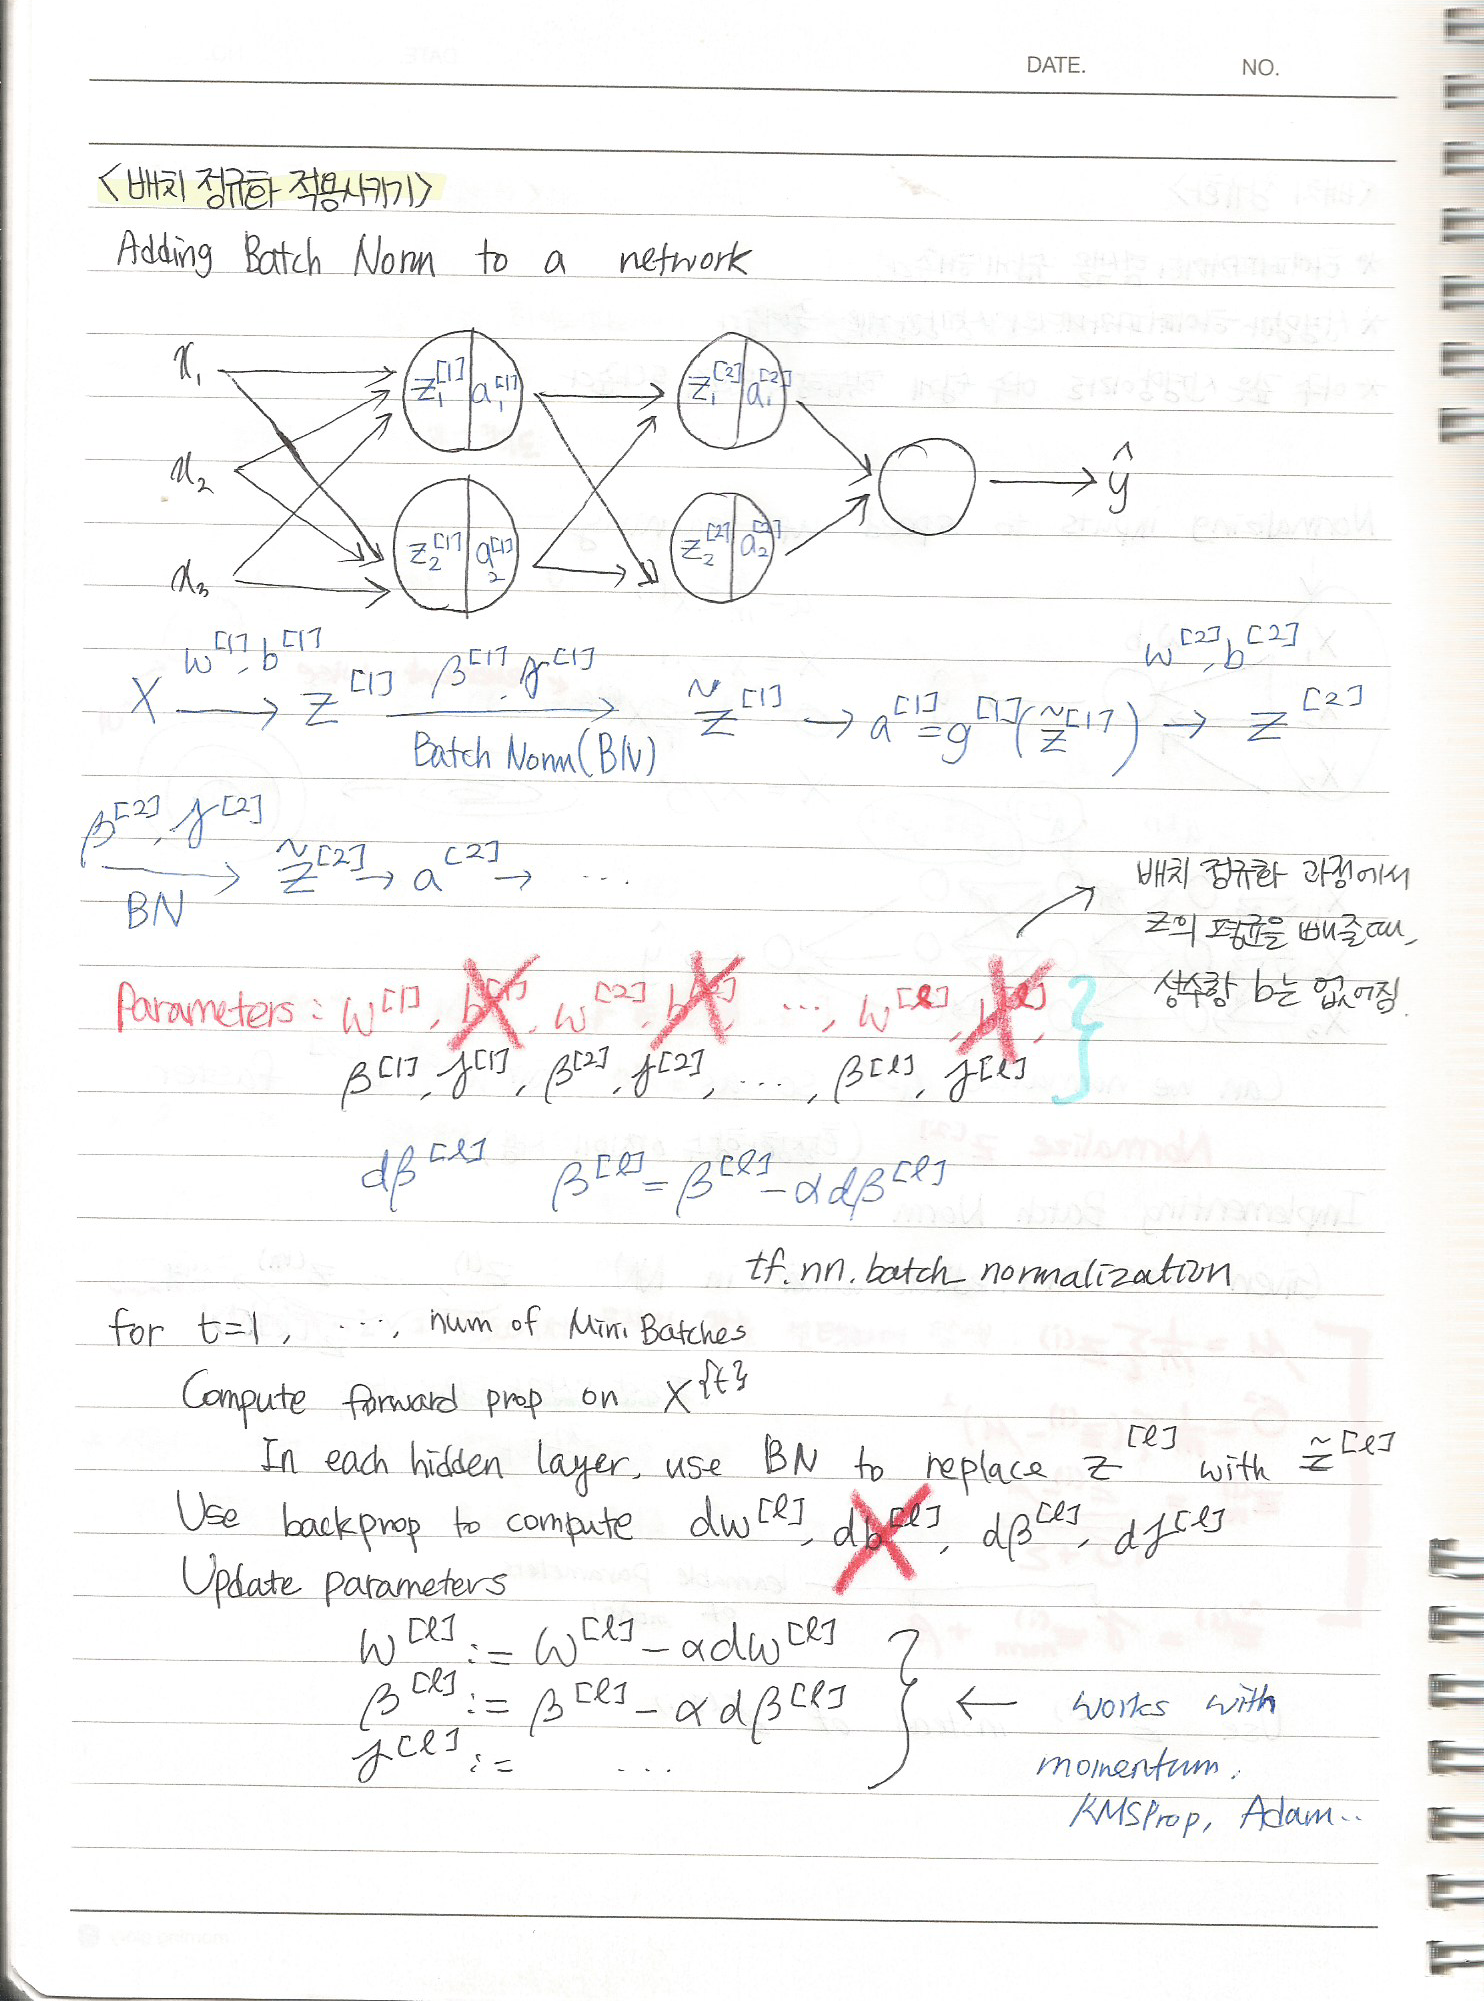 DATE. NO.
<배치 정규화 적용시키기>
Adding Batch Norm to a network
x₁ z₁^[1] a₁^[1] z₁^[2] a₁^[2]
x₂ ŷ
x₃ z₂^[1] a₂^[1] z₂^[2] a₂^[2]
w^[1], b^[1] β^[1], γ^[1] w^[2], b^[2]
X → z^[1] → z̃^[1] → a^[1] = g^[1](z̃^[1]) → z^[2]
Batch Norm (BN)
β^[2], γ^[2]
→ z̃^[2] → a^[2] → ...
BN
배치 정규화 과정에서
z의 평균을 빼줄때,
상수항 b는 없어짐.
Parameters: w^[1], b^[1], w^[2], b^[2], ..., w^[l], b^[l],
β^[1], γ^[1], β^[2], γ^[2], ..., β^[l], γ^[l]
dβ^[l] β^[l] = β^[l] - αdβ^[l]
tf.nn.batch_normalization
for t=1, ..., num of Mini Batches
Compute forward prop on X^{t}
In each hidden layer, use BN to replace z^[l] with z̃^[l]
Use backprop to compute dw^[l], db^[l], dβ^[l], dγ^[l]
Update parameters
w^[l] := w^[l] - αdw^[l]
β^[l] := β^[l] - αdβ^[l] ← works with
γ^[l] := ... momentum.
RMSProp, Adam..